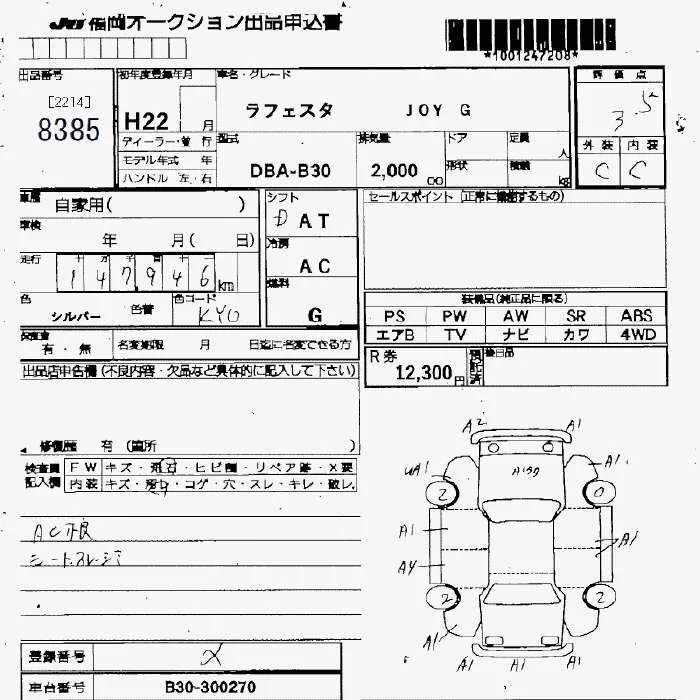 JU 福岡オークション出品申込書
*1001247208*
出品番号 初年度登録年月 車名・グレード 評価点
[2214]
8385
H22 月
ラフェスタ JOY G
3.5
ディーラー・並 行
モデル年式 年
ハンドル 左・右
型式 排気量 ドア 定員 人
DBA-B30 2,000 cc 形状 積載 kg
外装 内装
C C
車歴 自家用( )
車検 年 月( 日)
走行 十 万 千 百 十 一
147,946 km
シフト
D AT
冷房
AC
燃料
G
セールスポイント (正常に機能するもの)
色 シルバー 色替 色コード KY0
装備品(純正品に限る)
PS PW AW SR ABS
エアB TV ナビ カワ 4WD
有・無 名変期限 月 日迄に名変できる方
R券 12,300円 預託済 後日品
出品店申告欄(不良内容・欠品など具体的に記入して下さい)
修復歴 有 (箇所 )
検査員記入欄
FW キズ・飛石・ヒビ割・リペア跡・X要
内装 キズ・汚れ・コゲ・穴・スレ・キレ・破レ
AC不良
A2 A1
UA1 A1
2 0
A1 A1
A4
2 2
A1 A1
A1 A1 A1
登録番号
車台番号 B30-300270